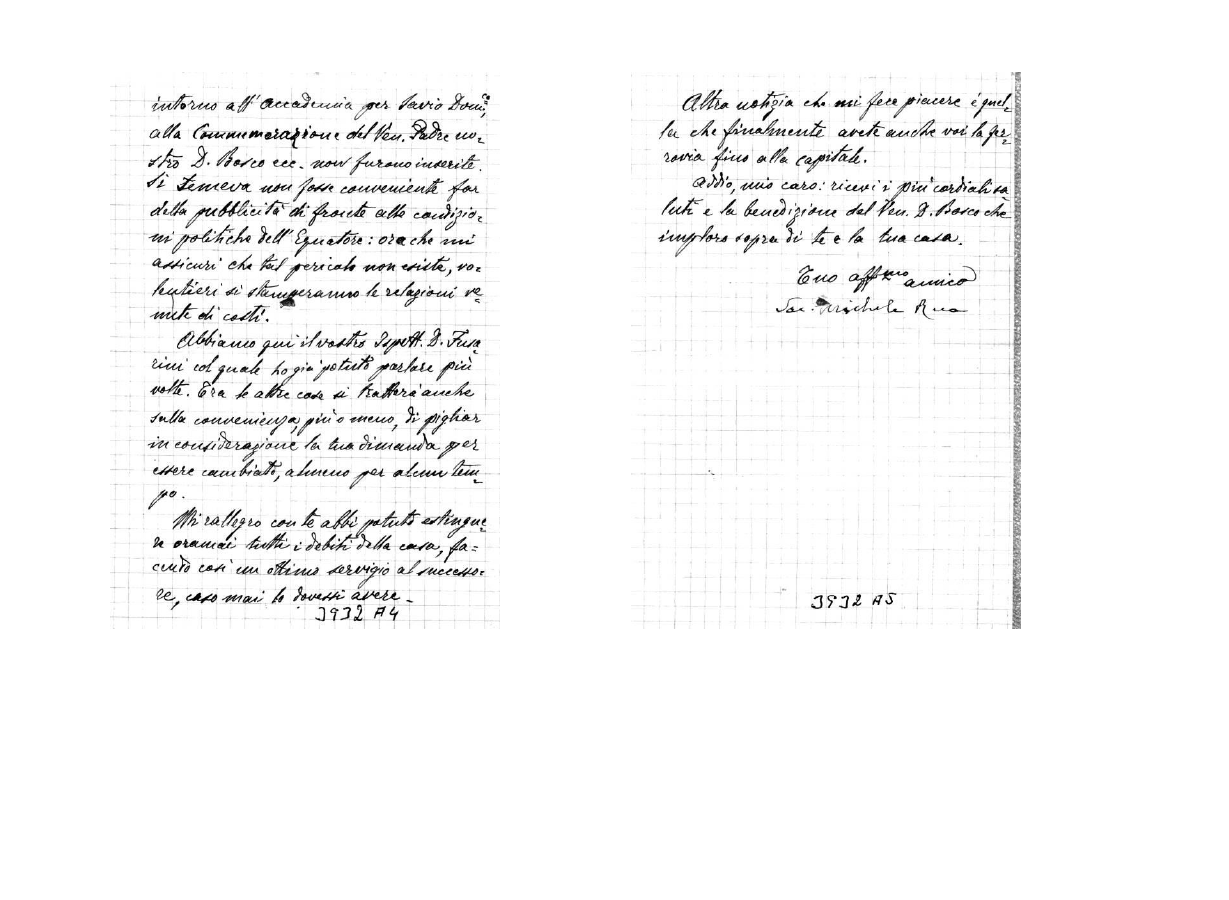 intorno all' Accademia per Savio Domco,
alla Commemorazione del Ven. Padre no=
stro D. Bosco ecc. non furono inserite.
Si temeva non fosse conveniente far
della pubblicità di fronte alle condizio=
ni politiche dell' Equatore: ora che mi
assicuri che tal pericolo non esiste, vo=
lentieri si stamperanno le relazioni ve=
nute di costì.
Abbiamo qui il vostro Ispett. D. Fusa=
rini col quale ho già potuto parlare più
volte. Era le altre cose si tratterà anche
sulla convenienza, più o meno, di pigliar
in considerazione la tua dimanda per
essere cambiato, almeno per alcun tem=
po.
Mi rallegro con te abbi potuto estingue=
re oramai tutti i debiti della casa, fa=
cendo così un ottimo servigio al successo=
re, caso mai lo dovessi avere _
3932 A4
Altra notizia che mi fece piacere è quel=
la che finalmente avete anche voi la fer=
rovia fino alla capitale.
Addio, mio caro: ricevi i più cordiali sa=
luti e la benedizione del Ven. D. Bosco che
imploro sopra di te e la tua casa.
Tuo affmo amico
Sac. Michele Rua
3932 A5